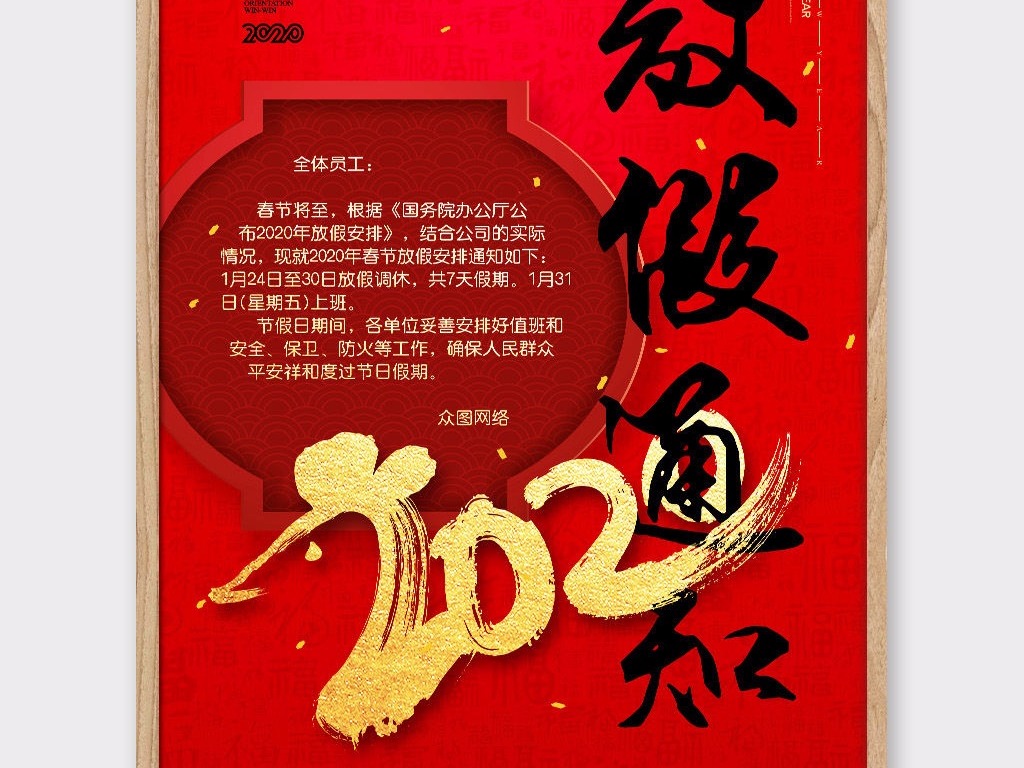 ORIENTATION
WIN-WIN
2020
YEAR
放
假
通
知
全体员工：
春节将至，根据《国务院办公厅公
布2020年放假安排》，结合公司的实际
情况，现就2020年春节放假安排通知如下：
1月24日至30日放假调休，共7天假期。1月31
日(星期五)上班。
节假日期间，各单位妥善安排好值班和
安全、保卫、防火等工作，确保人民群众
平安祥和度过节日假期。
众图网络
202